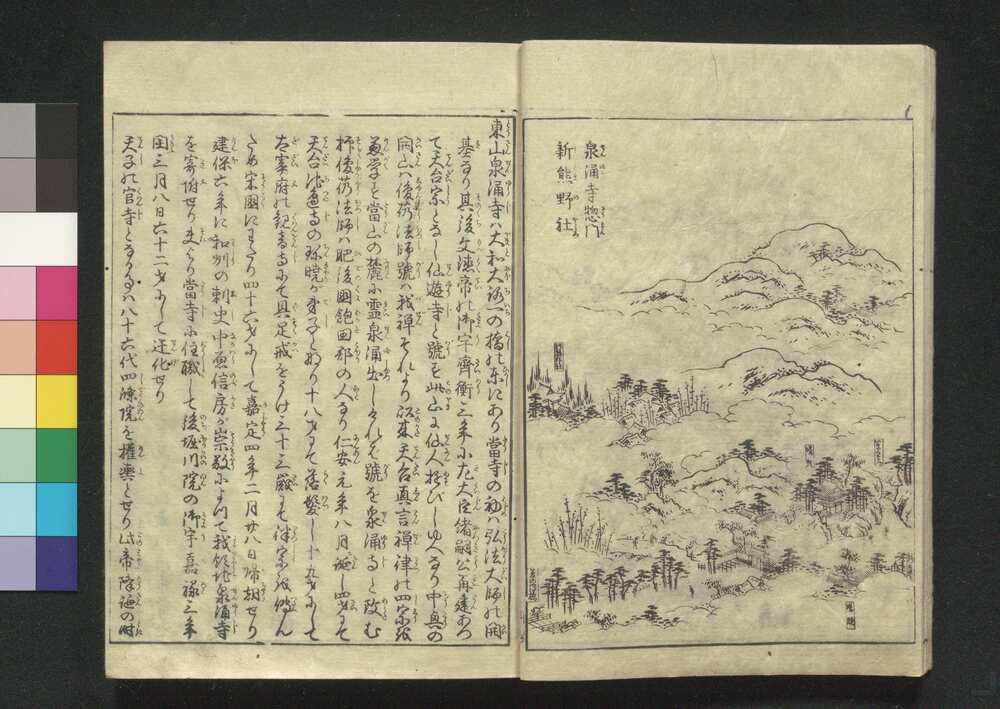 泉涌寺惣門
新熊野社
東山泉涌寺ハ大和大路一の橋の東にあり當寺の初ハ弘法大師の開
基なり其後文徳帝の御宇齊衡三年に左大臣緒嗣公再建あつ
て天台宗となし仙遊寺と號す此山に仙人遊びしゆへなり中興の
開山ハ俊芿法師號ハ我禅それより以来天台真言禅律の四宗を
兼学す當山の麓に霊泉涌出しけれバ號を泉涌寺と改む
抑俊芿法師ハ肥後國飽田郡の人なり仁安元年八月誕し四才にて
天台池邉寺の珎暁が弟子となり十八才にて落髪し十九才にして
太宰府の観音寺にて具足戒をうけ三十三歳にて律宗を傳ん
ため宋國にわたり四十六才にして嘉定四年二月廿八日帰朝せり
建保六年に和州の刺史中原信房が崇敬によつて我領地泉涌寺
を寄附せり夫より當寺に住職して後堀川院の御宇嘉禄三年
閏三月八日六十二才にして迁化せり
天子の官寺となる事ハ八十六代四條院を權輿とせり此帝降誕の時